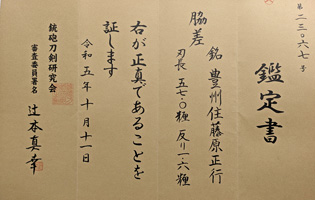 第二三〇六七号
鑑定書
脇差
銘 豊州住藤原正行
刃長 五七・〇糎 反り一・六糎
右が正真であることを
証します
令和五年十月十一日
銃砲刀剣研究会
審査委員署名
辻本真幸